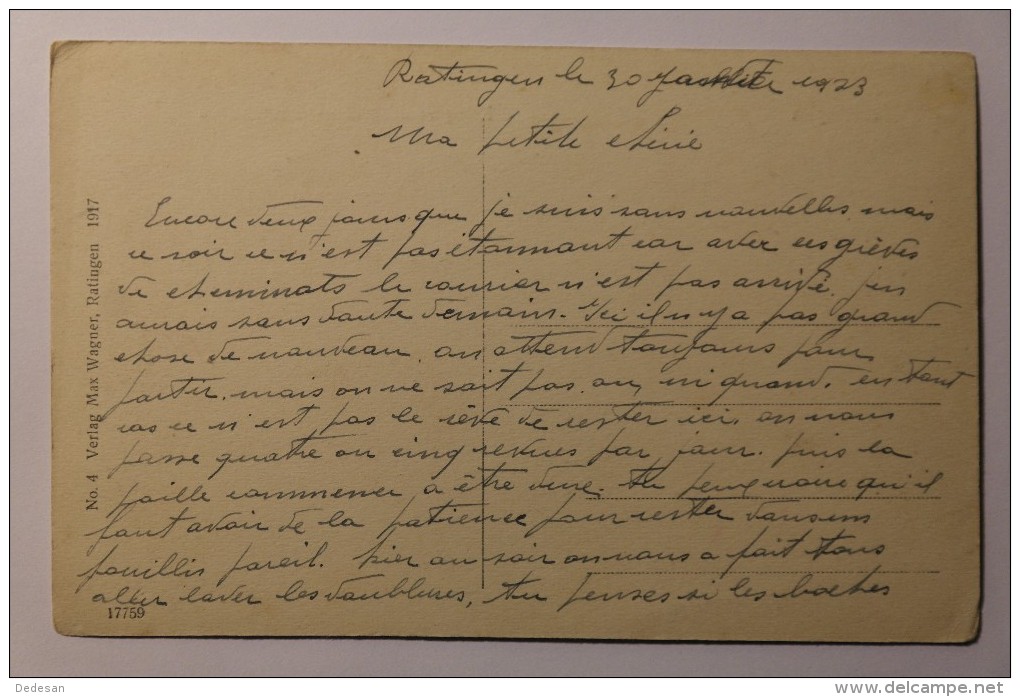 Ratingen le 30 1923
Ma petite chérie
Encore deux jours que je suis sans nouvelles, mais
ce soir ce n'est pas étonnant car avec ces grèves
de cheminots le courrier n'est pas arrivé. j'en
aurais sans doute demain. Ici il n'y a pas grand
chose de nouveau. on attend toujours pour
partir, mais on ne sait pas ou, ni quand. en tout
cas ce n'est pas le rêve de rester ici. on nous
passe quatre ou cinq revues par jour. puis la
paille commence a être dure. tu peux croire qu'il
faut avoir de la patience pour rester dans un
fouillis pareil. hier au soir on nous a fait tous
aller laver les doublures, tu penses si les boches
No. 4 Verlag Max Wagner, Ratingen 1917
17759
Dedesan
www.delcampe.net